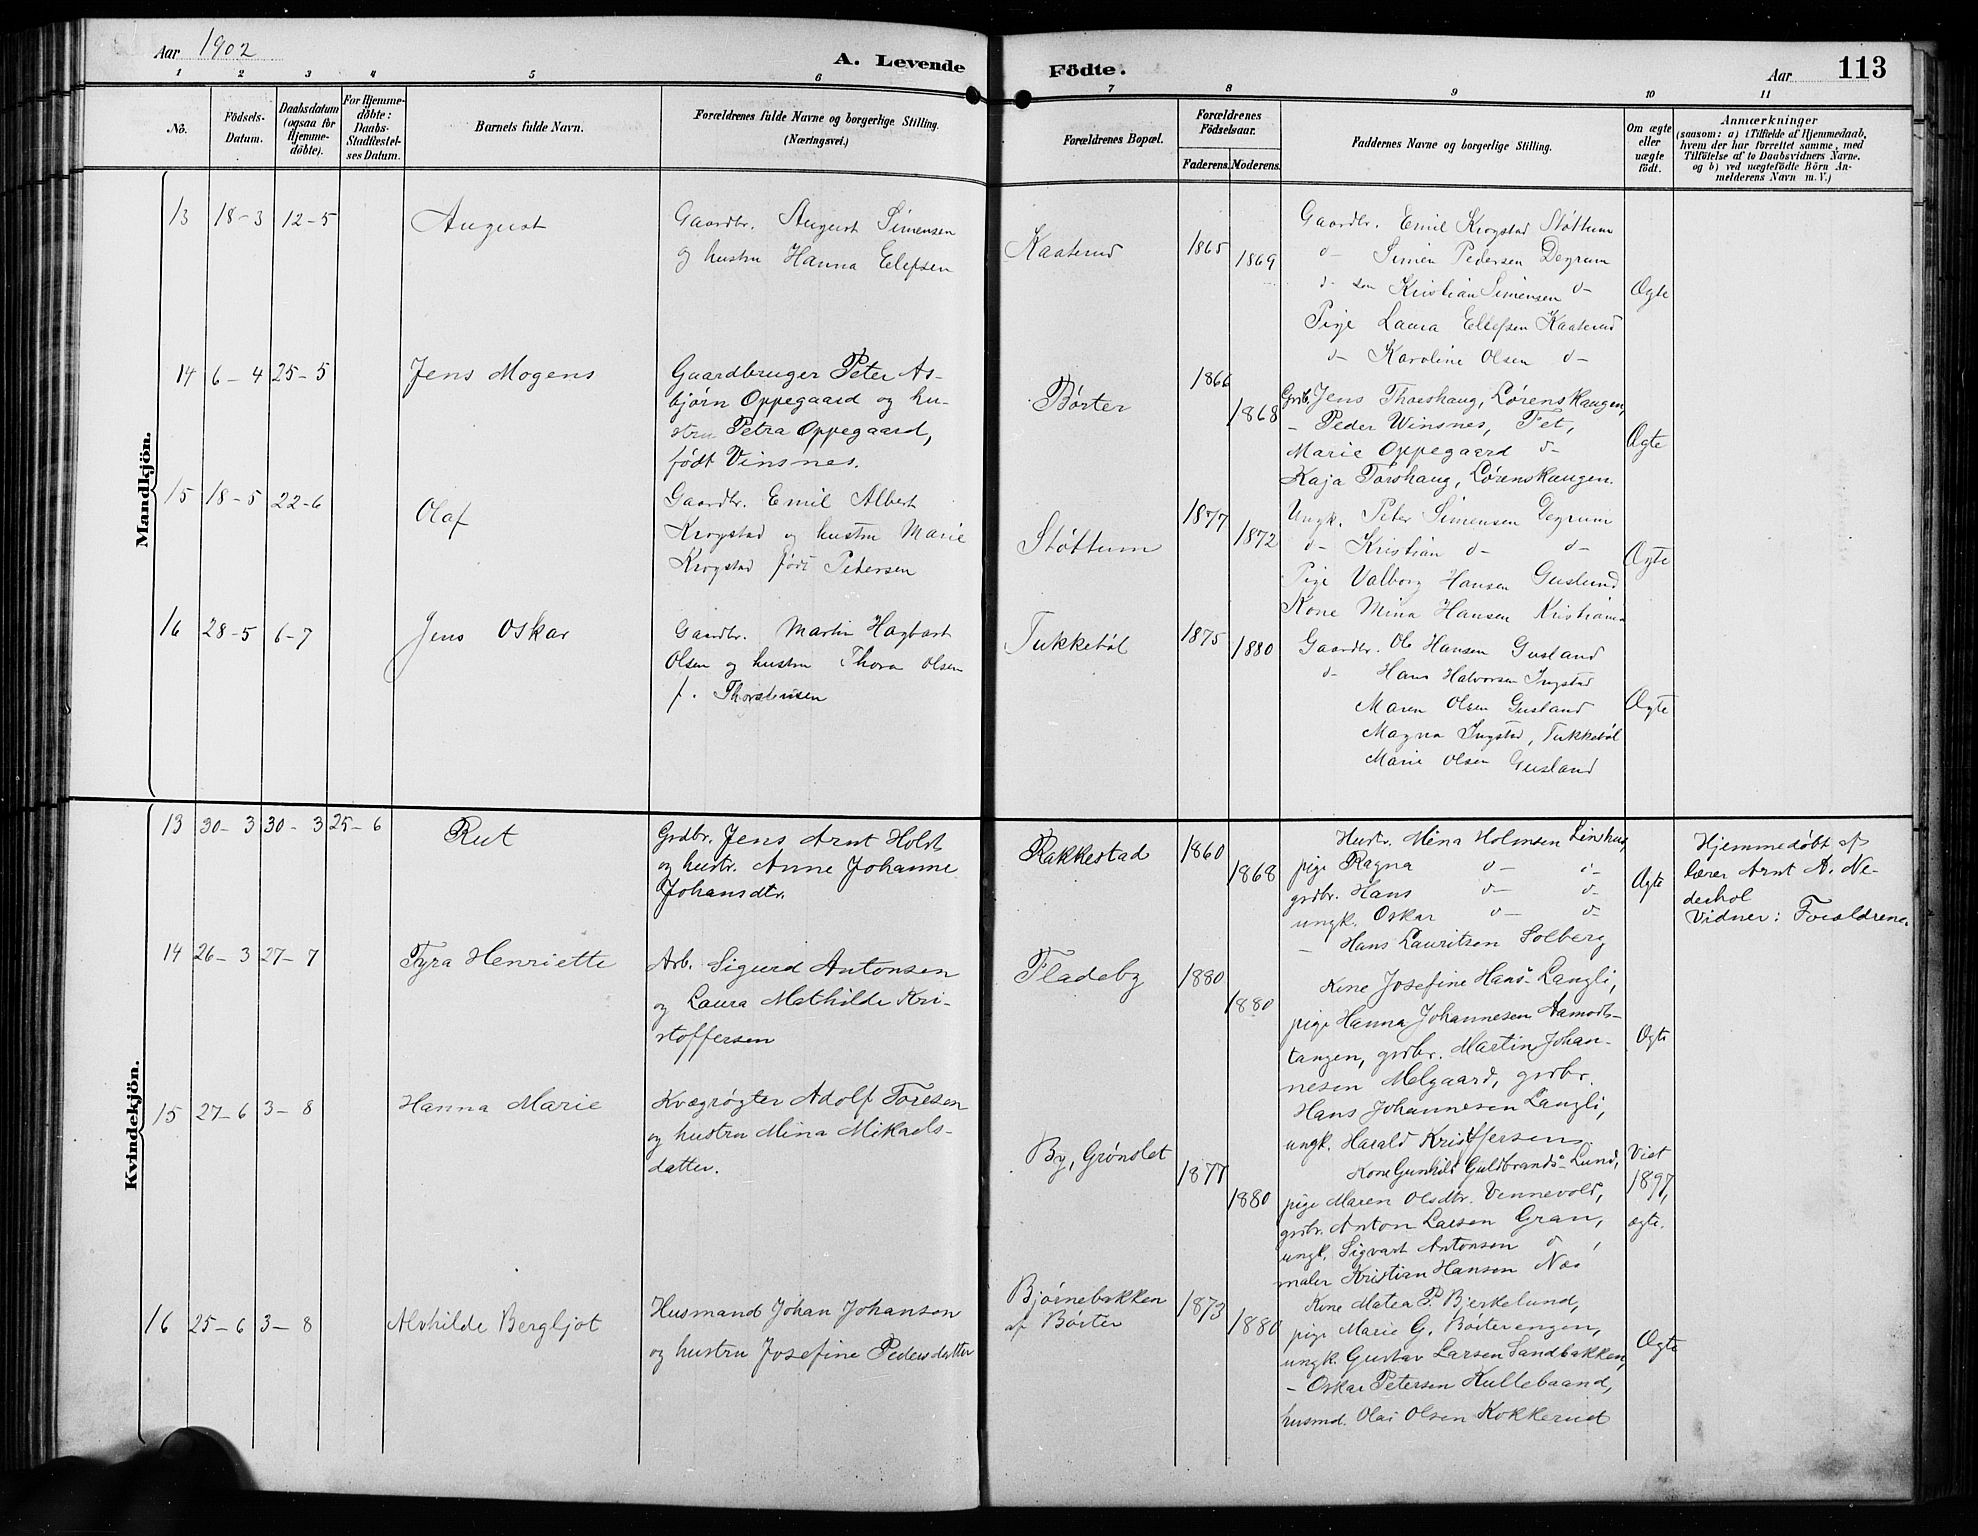 Aar 1902
A. Levende Födte.
Aar 113
1 2 3 4 5 6 7 8 9 10 11
No.
Födsels-Datum.
Daabsdatum (ogsaa for Hjemme-döbte).
For Hjemme-döbte: Daabs-Stadfæstel-ses Datum.
Barnets fulde Navn.
Forældrenes fulde Navne og borgerlige Stilling. (Næringsvei.)
Forældrenes Bopæl.
Forældrenes Födselsaar.
Faderens. Moderens.
Faddernes Navne og borgerlige Stilling.
Om ægte eller uægte födt.
Anmærkninger
(saasom: a) i Tilfælde af Hjemmedaab, hvem der har forrettet samme, med Tilföielse af to Daabsvidners Navne. og b) ved uægtefödte Börn An-melderens Navn m. V.)
Mandkjön.
13 18-3 12-5 August
Gaardbr. August Simensen
og hustru Hanna Elefsen
Kaaterud 1865 1869
Gaardbr. Emil Krogstad Støttum
d- Simen Pedersen Degrum
d- søn Kristian Simensen d-
Pige Laura Ellefsen Kaaterud
d- Karoline Olsen d-
Ægte
14 6-4 25-5 Jens Mogens
Gaardbruger Peter As-
bjørn Oppegaard og hu-
stru Petra Oppegaard,
født Vinsnes.
Børter 1866 1868
Grb. Jens Thorshaug, Lørenskaugen,
- Peder Winsnes, Fet,
Marie Oppegaard d-
Kaja Torshaug, Lørenskaugen.
Ægte
15 18-5 22-6 Olaf
Gaardbr. Emil Albert
Krogstad og hustru Marie
Krogstad født Pedersen
Støttum 1877 1872
Ungk. Peter Simensen Degrum
d- Kristian d- d-
Pige Valborg Hansen Guslund
Kone Mina Hansen Kristiania
Ægte
16 28-5 6-7 Jens Oskar
Gaardbr. Martin Hagbart
Olsen og hustru Thora Olsen
f. Thorstensen
Tukkebøl 1875 1880
Gaardbr. Ole Hansen Gusland
d- Hans Halvorsen Ingstad
Maren Olsen Gusland
Magna Ingstad, Tukkebøl
Marie Olsen Gusland
Ægte
Kvindekjön.
13 30-3 30-3 25-6 Rut
Grdbr. Jens Arnt Holst
og hustr. Anne Johanne
Johansdtr.
Rakkestad 1860 1868
Hustr. Mina Holmsen Linshug
pige Ragna d- d-
grdbr. Hans d- d-
ungk. Oskar d- d-
- Hans Lauritsen Solberg
Ægte
Hjemmedøbt af
lærer Arnt A. Ne-
derhol
Vidner: Forældrene.
14 26-3 27-7 Tyra Henriette
Arb. Sigurd Antonsen
og Laura Mathilde Kri-
stoffersen
Fladeby 1880 1880
Kone Josefine Hans- Langli,
pige Hanna Johannesen Aamodt-
tangen, grdbr. Martin Johan-
nesen Melgaard, grdbr.
Hans Johannesen Langli,
ungk. Harald Kristffersen
Ægte
15 27-6 3-8 Hanna Marie
Kvægrøgter Adolf Toresen
og hustru Mina Mikaels-
datter.
By, Grønslet 1877 1880
Kone Gunhild Guldbrands- Lund,
pige Maren Olsdtr. Vennevold,
grdbr. Anton Larsen Gran,
ungk. Sigvart Antonsen d,
maler Kristian Hansen Næs
Viet
1897,
ægte.
16 25-6 3-8 Alvhilde Bergljot
Husmand Johan Johansen
og hustru Josefine Pedersdatter
Bjørnebakken
af Børter 1873 1880
Kone Matea P. Bjerkelund,
pige Marie G. Børterengen,
ungk. Gustav Larsen Sandbakken,
- Oskar Petersen Kullebaand,
husmd. Olai Olsen Kokkerud
Ægte